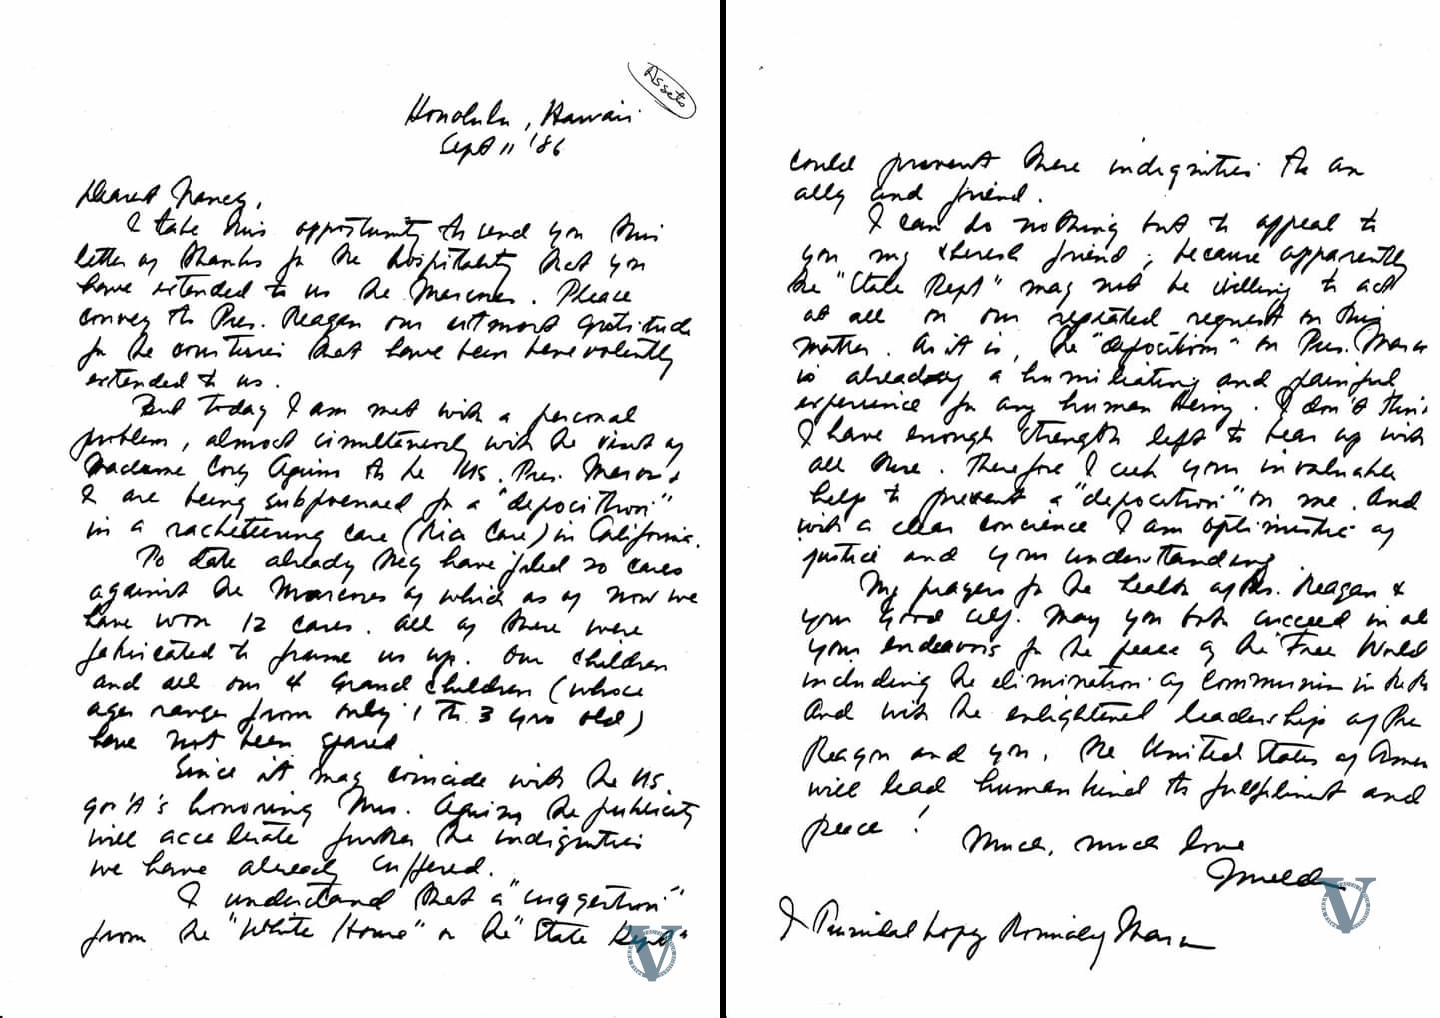 Assets
Honolulu, Hawaii
Sept 11 '86
Dearest Nancy,
I take this opportunity to send you this
letter of thanks for the hospitality that you
have extended to us the Marcoses. Please
convey to Pres. Reagan our utmost gratitude
for the courtesies that have been benevolently
extended to us.
But today I am met with a personal
problem, almost simultaneously with the visit of
Madame Cory Aquino to the US. Pres. Marcos &
I are being subpoenaed for a "deposition"
in a racketeering case (Rico Case) in California.
To date already they have filed 20 cases
against the Marcoses of which as of now we
have won 12 cases. All of these were
fabricated to frame us up. Our children
and all our 4 grand children (whose
ages ranges from only 1 to 3 yrs old)
have not been spared.
Since it may coincide with the US.
gov't's honoring Mrs. Aquino the publicity
will accelerate further the indignities
we have already suffered.
I understand that a "suggestion"
from the "White House" or the "State Dept"
V
could prevent these indignities to an
ally and friend.
I can do nothing but to appeal to
you my friend, because apparently
the "State Dept" may not be willing to act
at all on our repeated request on this
matter. As it is, the "deposition" on Pres. Marcos
is already a humiliating and painful
experience for any human being. I don't think
I have enough strength left to bear up with
all these. Therefore I seek your invaluable
help to prevent a "deposition" on me. And
with a clear concience I am optimistic of
justice and your understanding.
My prayers for the health of Pres. Reagan &
your good self. May you both succeed in all
your endeavors for the peace of the Free World
including the elimination of communism in
And with the enlightened leadership of Pres
Reagan and you, the United States of Amer
will lead human kind to fulfilment and
peace!
Much, much love
Imelda
V
I Romualdez Marcos